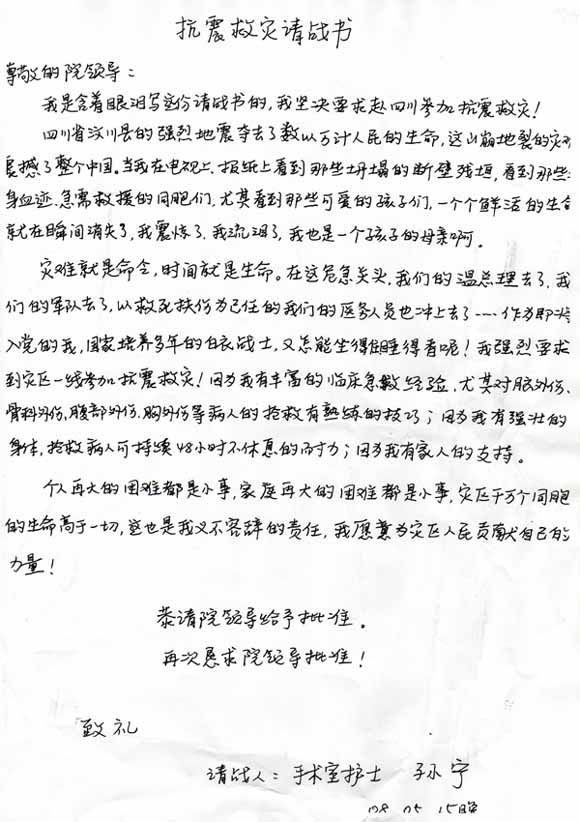 抗震救灾请战书
尊敬的院领导：
我是含着眼泪写这份请战书的，我坚决要求赴四川参加抗震救灾！
四川省汶川县的强烈地震夺去了数以万计人民的生命，这山崩地裂的灾
震撼了整个中国。当我在电视上、报纸上看到那些坍塌的断壁残垣，看到那些
身血迹、急需救援的同胞们，尤其看到那些可爱的孩子们，一个个鲜活的生命
就在瞬间消失了，我震惊了，我流泪了，我也是一个孩子的母亲啊。
灾难就是命令，时间就是生命。在这危急关头，我们的温总理去了，我
们的军队去了，以救死扶伤为己任的我们的医务人员也冲上去了……作为即将
入党的我，国家培养多年的白衣战士，又怎能坐得住睡得着呢！我强烈要求
到灾区一线参加抗震救灾！因为我有丰富的临床急救经验，尤其对脑外伤、
骨科外伤，腹部外伤，胸外伤等病人的抢救有熟练的技巧；因为我有强壮的
身体，抢救病人可持续48小时不休息的耐力；因为我有家人的支持。
个人再大的困难都是小事，家庭再大的困难都是小事，灾区千万个同胞
的生命高于一切，这也是我义不容辞的责任，我愿意为灾区人民贡献自己的
力量！
恭请院领导给予批准。
再次恳求院领导批准！
致礼
请战人：手术室护士 孙宁
08.05.15晚